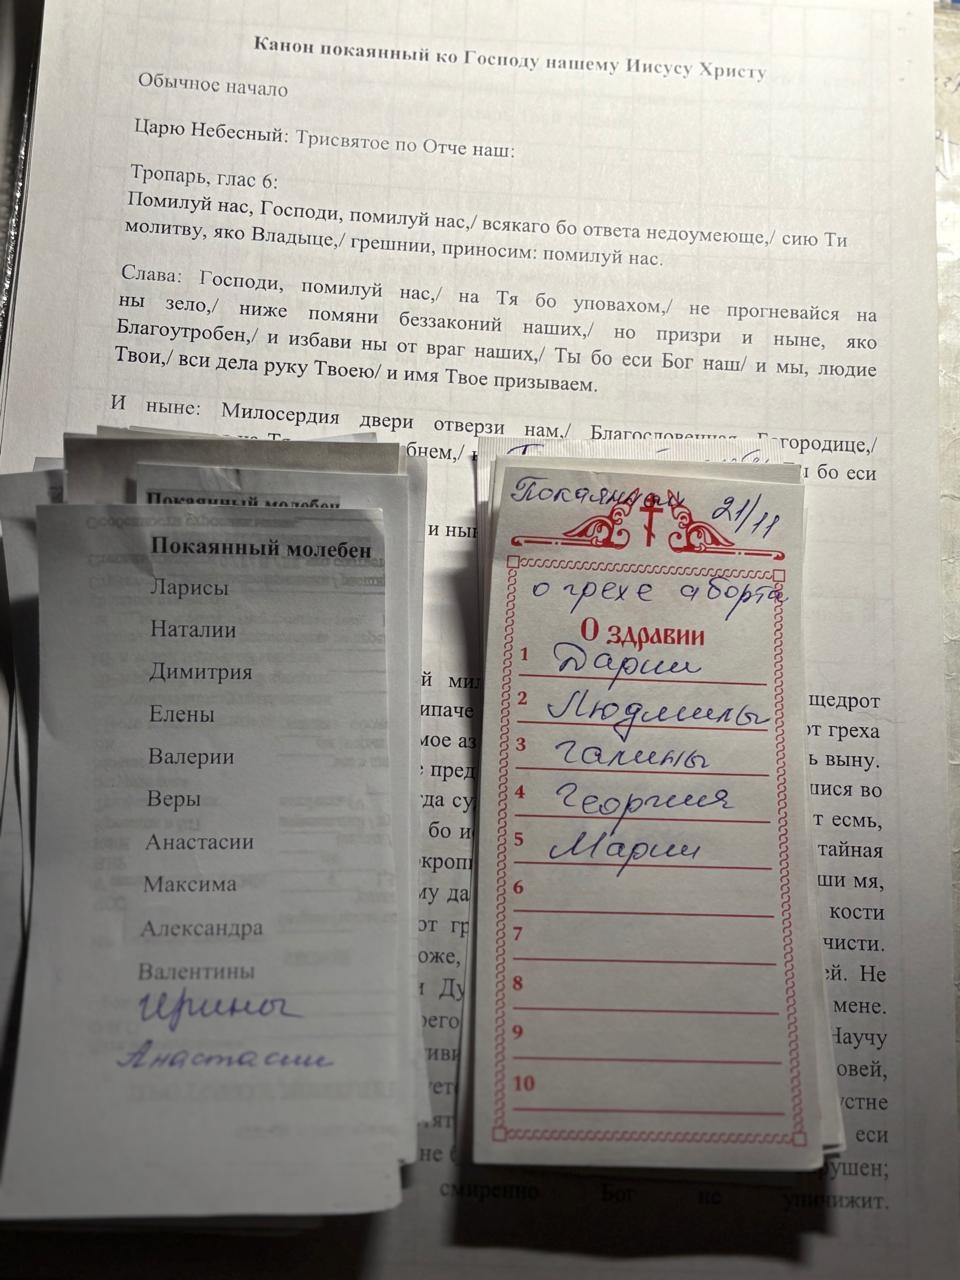 Канон покаянный ко Господу нашему Иисусу Христу
Обычное начало
Царю Небесный: Трисвятое по Отче наш:
Тропарь, глас 6:
Помилуй нас, Господи, помилуй нас,/ всякаго бо ответа недоумеюще,/ сию Ти
молитву, яко Владыце,/ грешнии, приносим: помилуй нас.
Слава: Господи, помилуй нас,/ на Тя бо уповахом,/ не прогневайся на
ны зело,/ ниже помяни беззаконий наших,/ но призри и ныне, яко
Благоутробен,/ и избави ны от враг наших,/ Ты бо еси Бог наш/ и мы, людие
Твои,/ вси дела руку Твоею/ и имя Твое призываем.
И ныне: Милосердия двери отверзи нам,/ Благословенная Богородице,/
бо еси
и
Покаянный молебен
Покаянный молебен
Ларисы
Наталии
Димитрия
Елены
Валерии
Веры
Анастасии
Максима
Александра
Валентины
Ирины
Анастасии
Покаянный 21/11
о грехе аборта
О здравии
1 Дарии
2 Людмилы
3 Галины
4 Георгия
5 Марии
6
7
8
9
10
щедрот
греха
выну.
во
бо
есмь,
тайная
мя,
кости
Не
мене.
Научу
еси
не
смиренно Бог не уничижит.